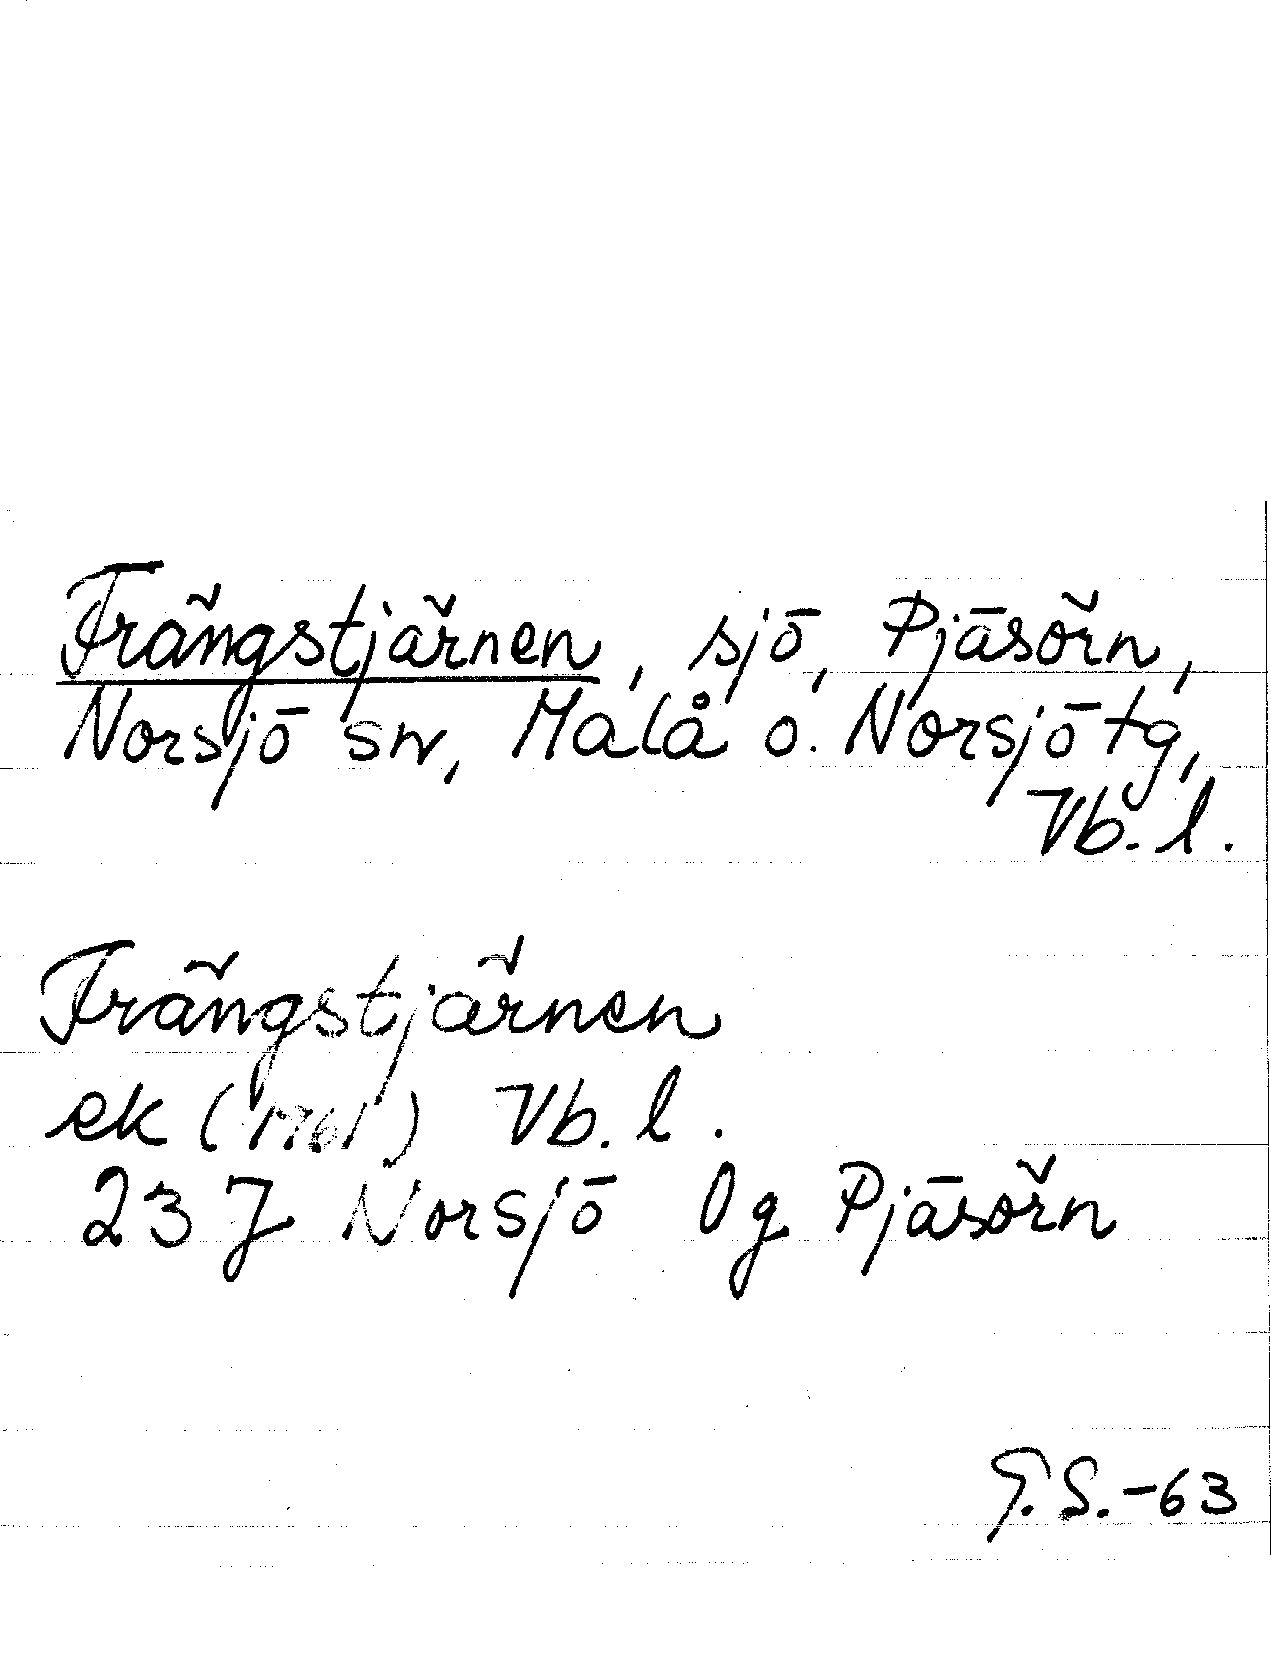 Trängstjärnen, sjö, Pjäsörn,
Norsjö sn, Malå o. Norsjö tg,
Vb. l.
Trängstjärnen
ek (1961) Vb. l.
23 J Norsjö 0 g Pjäsörn
G.S.-63